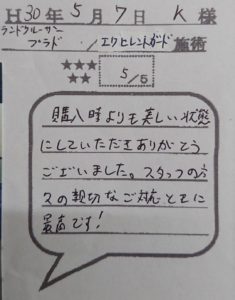 H30年5月7日 K 様
ランドクルーザー
プラド / エクセレントガード 施術
★★★
★★
5/5
購入時よりも美しい状態
にしていただきありがとう
ございました。スタッフの方
々の親切なご対応ともに
最高です!